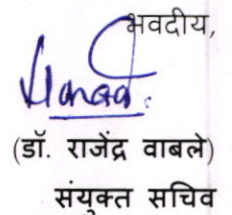 भवदीय,
(डॉ. राजेंद्र वाबले)
संयुक्त सचिव